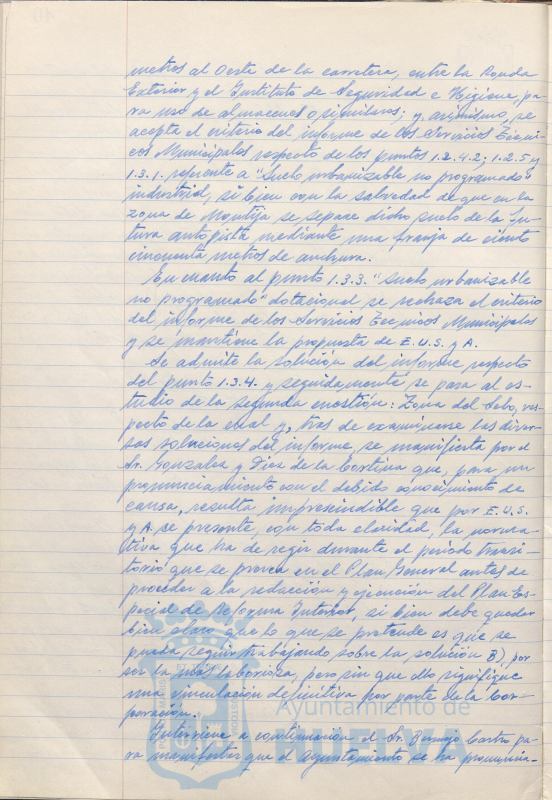 metros al Oeste de la carretera, entre la Ronda
Exterior y el Instituto de Seguridad e Higiene, pa-
ra uso de almacenes o similares; y, asimismo, se
acepta el criterio del informe de los Servicios Técni-
cos Municipales respecto de los puntos 1.2.4.2; 1.2.5 y
1.3.1. referente a "suelo urbanizable no programado"
industrial, si bien con la salvedad de que en la
zona de Montija se separe dicho suelo de la fu-
tura autopista mediante una franja de ciento
cincuenta metros de anchura.
En cuanto al punto 1.3.3. "suelo urbanizable
no programado" dotacional se rechaza el criterio
del informe de los Servicios Técnicos Municipales
y se mantiene la propuesta de E.U.S. y A.
Se admite la solución del informe respecto
del punto 1.3.4. y seguidamente se pasa al es-
tudio de la segunda cuestión: Zona del Sebo, res-
pecto de la cual y, tras de examinarse las diver-
sas soluciones del informe, se manifiesta por el
Sr. González y Díaz de la Cortina que, para un
pronunciamiento con el debido conocimiento de
causa, resulta imprescindible que por E.U.S.
y A. se presente, con toda claridad, la norma-
tiva que ha de regir durante el período transi-
torio que se prevea en el Plan General antes de
proceder a la redacción y ejecución del Plan Es-
pecial de Reforma Interior, si bien debe quedar
bien claro que lo que se pretende es que se
pueda seguir trabajando sobre la solución B), por
ser la más laboriosa, pero sin que ello signifique
una vinculación definitiva por parte de la Cor-
poración.
Ayuntamiento de
HUELVA
Interviene a continuación el Sr. Bermejo Castro pa-
ra manifestar que el Ayuntamiento se ha pronuncia-